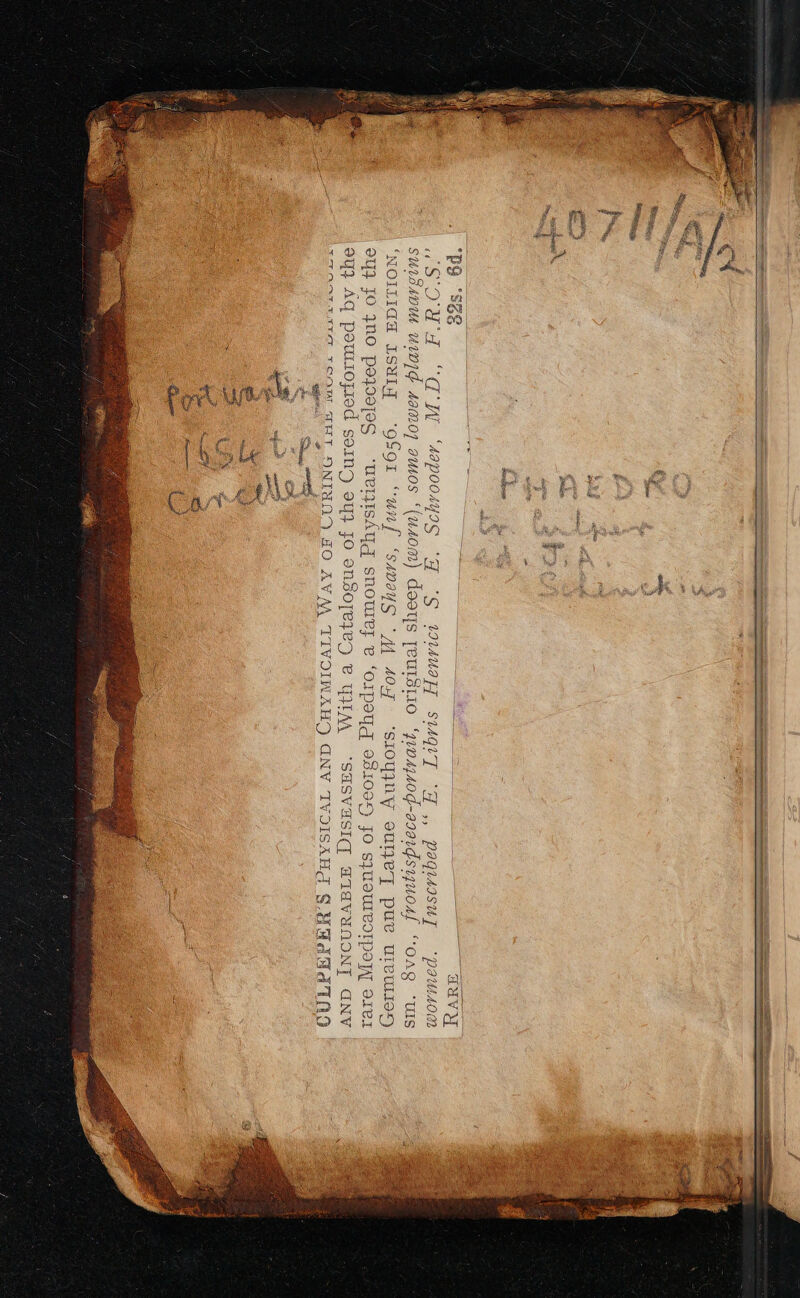 40711/A/2
PHAEDRO
CULPEPER'S PHYSICAL AND CHYMICALL WAY OF CURING THE MOST DIFFICULT
AND INCURABLE DISEASES. With a Catalogue of the Cures performed by the
rare Medicaments of George Phedrio, a famous Physitian. Selected out of the
Germain and Latine Authors. For W. Shears, Jun., 1656. FIRST EDITION,
sm. 8vo., frontispiece-portrait, original sheep (worn), some lower plain margins
wormed. Inscribed "E. Libris Henrici S. E. Schrooder, M.D., F.R.C.S."
RARE 32s. 6d.
Port wanting
1656 t.p.
Cancelled